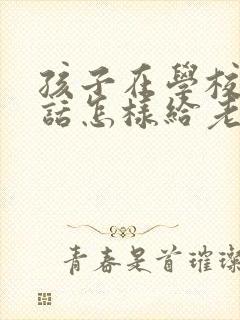 孩子在學校
話怎樣給老
青春是首璀璨